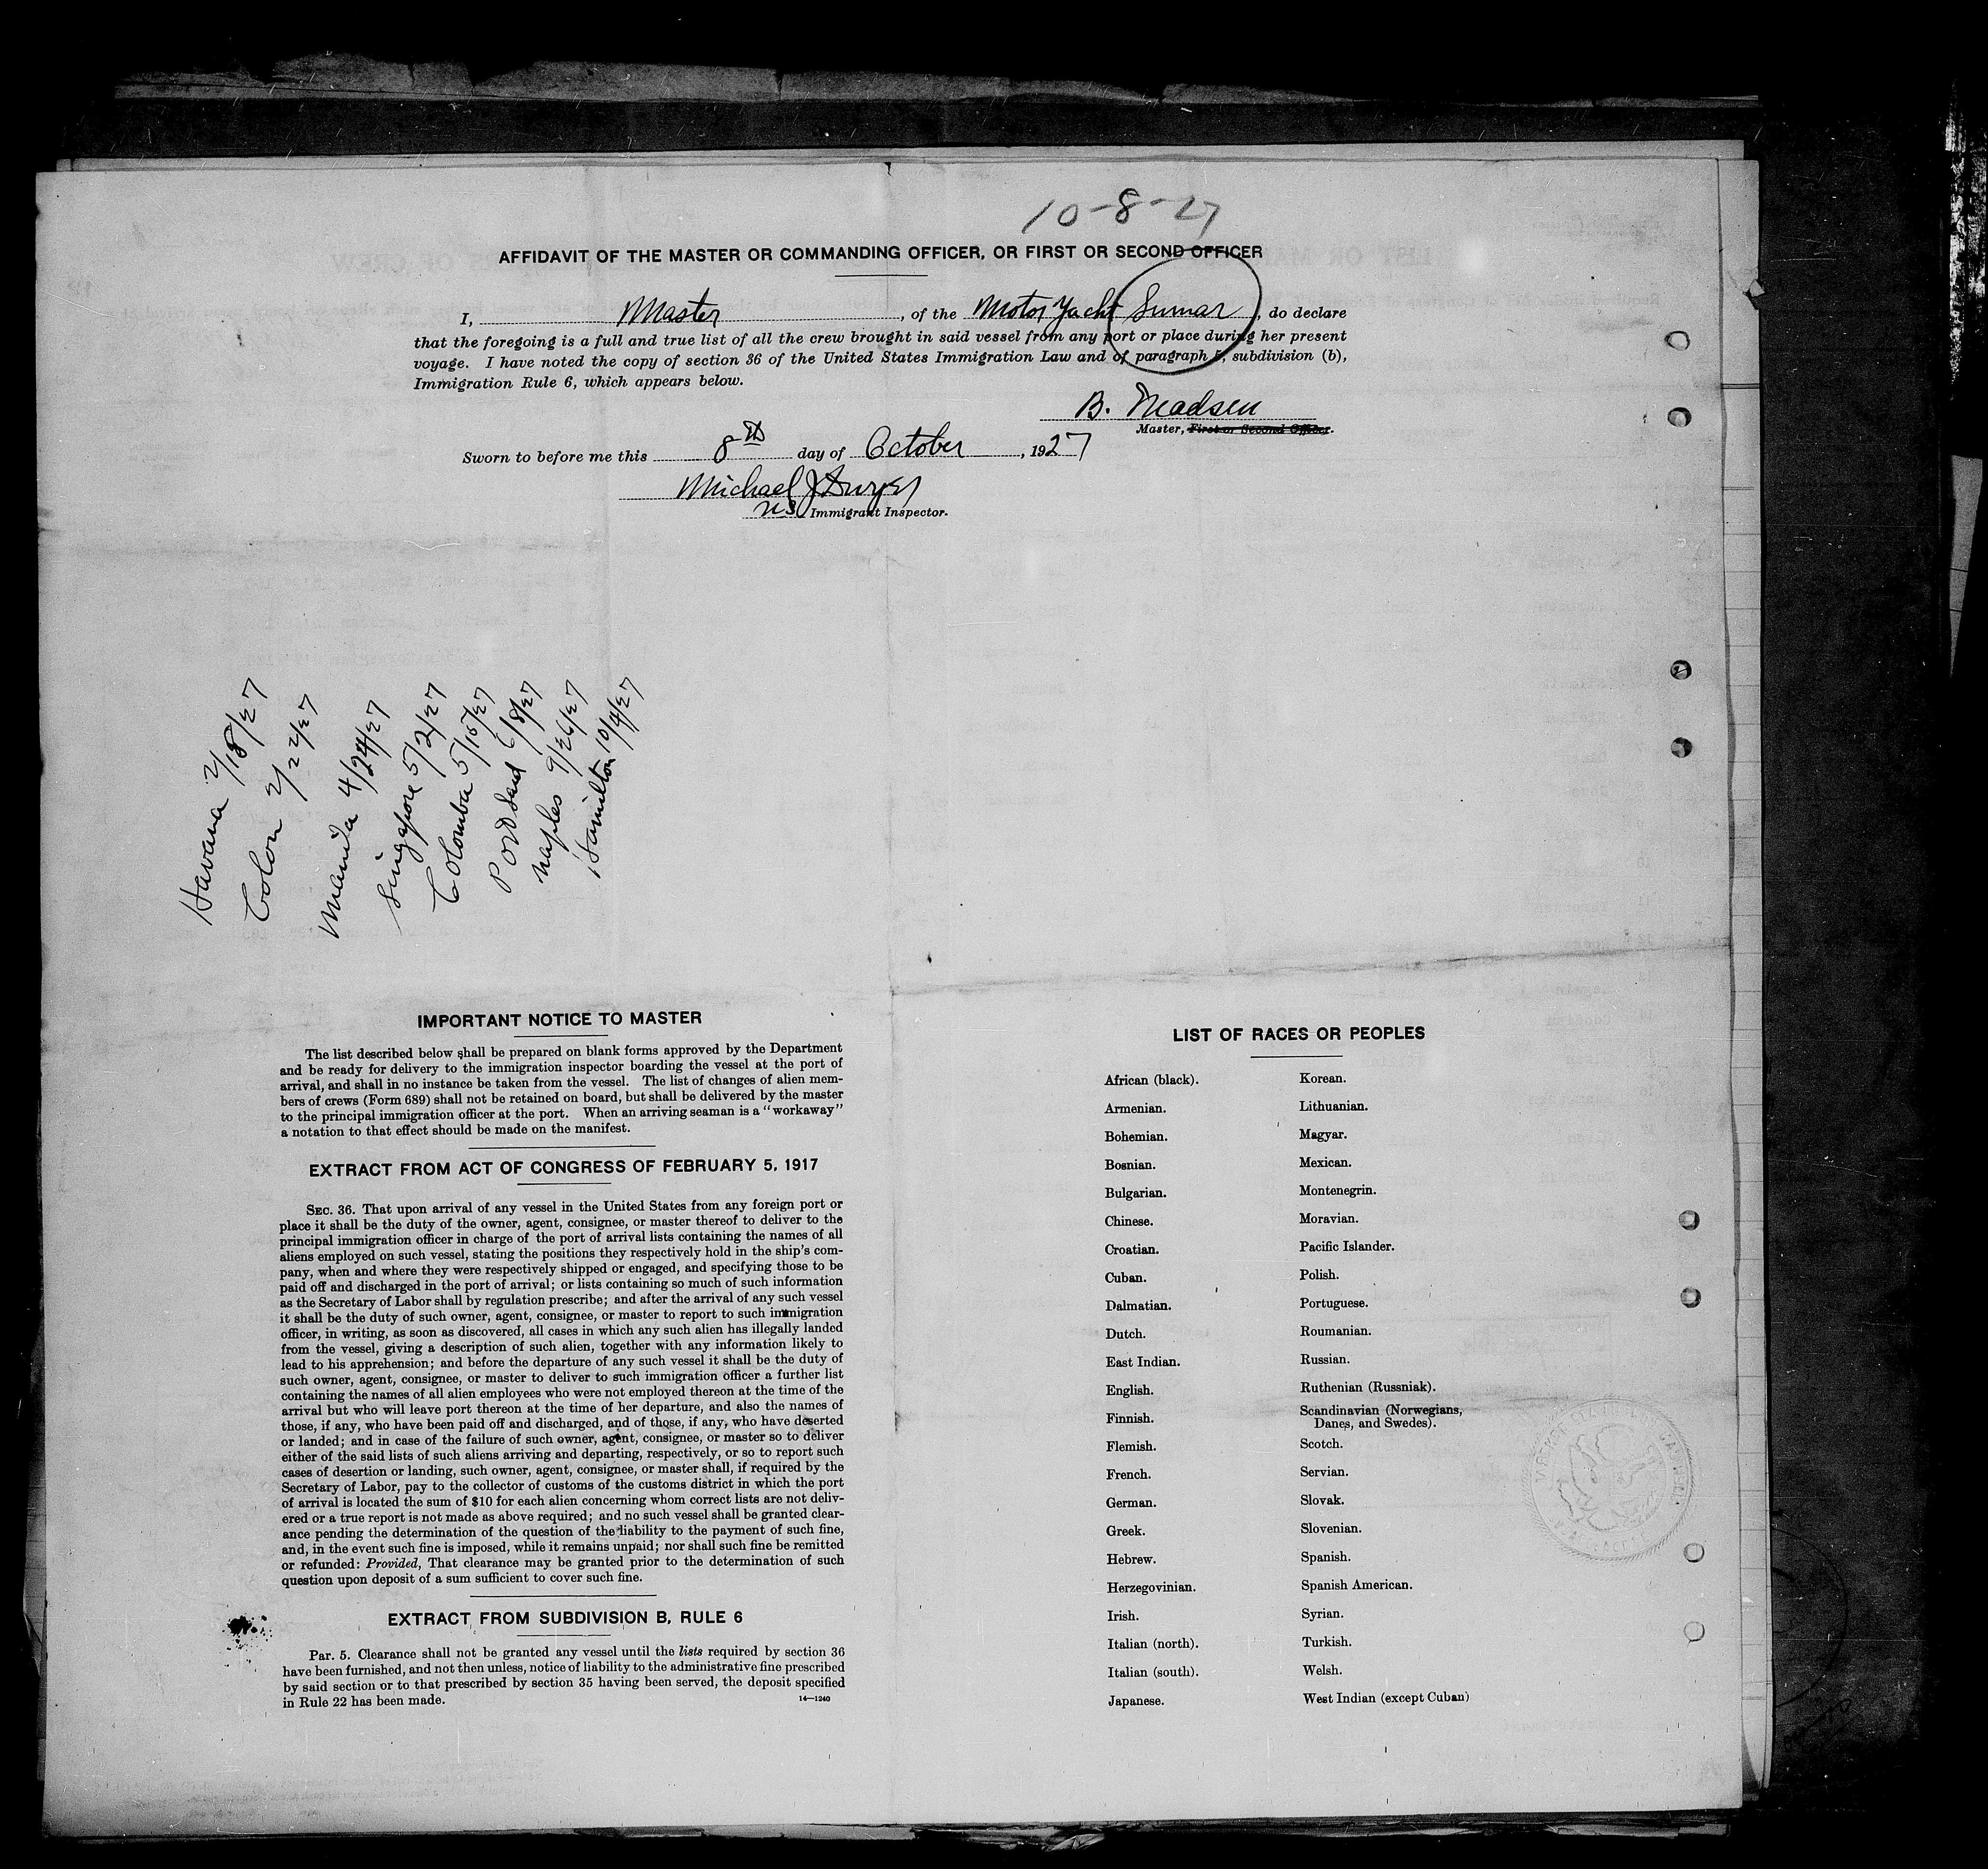 10-8-27
AFFIDAVIT OF THE MASTER OR COMMANDING OFFICER, OR FIRST OR SECOND OFFICER
I, Master, of the Motor Yacht Sumar, do declare
that the foregoing is a full and true list of all the crew brought in said vessel from any port or place during her present
voyage. I have noted the copy of section 36 of the United States Immigration Law and of paragraph 5, subdivision (b),
Immigration Rule 6, which appears below.
B. Madsen
Master, First or Second Officer.
Sworn to before me this 8th day of October, 1927
Michael J Dwyer
US Immigrant Inspector.
Havana 2/18/27
Colon 2/22/27
Manila 4/24/27
Singapore 5/2/27
Colomba 5/15/27
Port Said 6/8/27
Naples 9/26/27
Hamilton 10/4/27
IMPORTANT NOTICE TO MASTER
The list described below shall be prepared on blank forms approved by the Department
and be ready for delivery to the immigration inspector boarding the vessel at the port of
arrival, and shall in no instance be taken from the vessel. The list of changes of alien mem-
bers of crews (Form 689) shall not be retained on board, but shall be delivered by the master
to the principal immigration officer at the port. When an arriving seaman is a "workaway"
a notation to that effect should be made on the manifest.
EXTRACT FROM ACT OF CONGRESS OF FEBRUARY 5, 1917
SEC. 36. That upon arrival of any vessel in the United States from any foreign port or
place it shall be the duty of the owner, agent, consignee, or master thereof to deliver to the
principal immigration officer in charge of the port of arrival lists containing the names of all
aliens employed on such vessel, stating the positions they respectively hold in the ship's com-
pany, when and where they were respectively shipped or engaged, and specifying those to be
paid off and discharged in the port of arrival; or lists containing so much of such information
as the Secretary of Labor shall by regulation prescribe; and after the arrival of any such vessel
it shall be the duty of such owner, agent, consignee, or master to report to such immigration
officer, in writing, as soon as discovered, all cases in which any such alien has illegally landed
from the vessel, giving a description of such alien, together with any information likely to
lead to his apprehension; and before the departure of any such vessel it shall be the duty of
such owner, agent, consignee, or master to deliver to such immigration officer a further list
containing the names of all alien employees who were not employed thereon at the time of the
arrival but who will leave port thereon at the time of her departure, and also the names of
those, if any, who have been paid off and discharged, and of those, if any, who have deserted
or landed; and in case of the failure of such owner, agent, consignee, or master so to deliver
either of the said lists of such aliens arriving and departing, respectively, or so to report such
cases of desertion or landing, such owner, agent, consignee, or master shall, if required by the
Secretary of Labor, pay to the collector of customs of the customs district in which the port
of arrival is located the sum of $10 for each alien concerning whom correct lists are not deliv-
ered or a true report is not made as above required; and no such vessel shall be granted clear-
ance pending the determination of the question of the liability to the payment of such fine,
and, in the event such fine is imposed, while it remains unpaid; nor shall such fine be remitted
or refunded: Provided, That clearance may be granted prior to the determination of such
question upon deposit of a sum sufficient to cover such fine.
EXTRACT FROM SUBDIVISION B, RULE 6
Par. 5. Clearance shall not be granted any vessel until the lists required by section 36
have been furnished, and not then unless, notice of liability to the administrative fine prescribed
by said section or to that prescribed by section 35 having been served, the deposit specified
in Rule 22 has been made.
14—1240
LIST OF RACES OR PEOPLES
African (black).
Armenian.
Bohemian.
Bosnian.
Bulgarian.
Chinese.
Croatian.
Cuban.
Dalmatian.
Dutch.
East Indian.
English.
Finnish.
Flemish.
French.
German.
Greek.
Hebrew.
Herzegovinian.
Irish.
Italian (north).
Italian (south).
Japanese.
Korean.
Lithuanian.
Magyar.
Mexican.
Montenegrin.
Moravian.
Pacific Islander.
Polish.
Portuguese.
Roumanian.
Russian.
Ruthenian (Russniak).
Scandinavian (Norwegians,
Danes, and Swedes).
Scotch.
Servian.
Slovak.
Slovenian.
Spanish.
Spanish American.
Syrian.
Turkish.
Welsh.
West Indian (except Cuban)